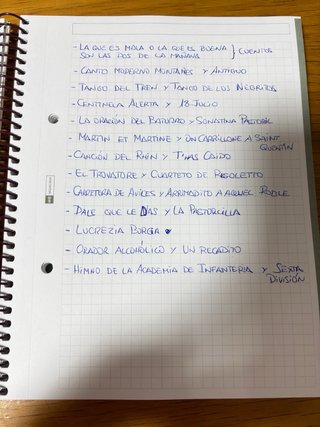 - LA QUE ES MALA O LA QUE ES BUENA } CUENTOS
SON LAS DOS DE LA MAÑANA
- CANTO MODERNO MONTAÑES Y ANTONIO
- TANGO DEL TREN Y TANGO DE LOS NEGRITOS
- CENTINELA ALERTA Y 18 JULIO
- LA ORACION DEL BATURRO Y SONATINA PASTORIL
- MARTIN ET MARTINE Y UN CARRILLONE A SAINT
QUENTIN
- CANCIÓN DEL RHIN Y T'HAS CAIDO
- EL TROVATORE Y CUARTETO DE RIGOLETTO
- CARRETERA DE AVILES Y ARRIMADITO A AQUEL ROBLE
- DALE QUE LE DAS Y LA PASTORCILLA
- LUCREZIA BORGIA
- ORADOR ALCOHÓLICO Y UN RECADITO
- HIMNO DE LA ACADEMIA DE INFANTERIA Y SEXTA
DIVISIÓN